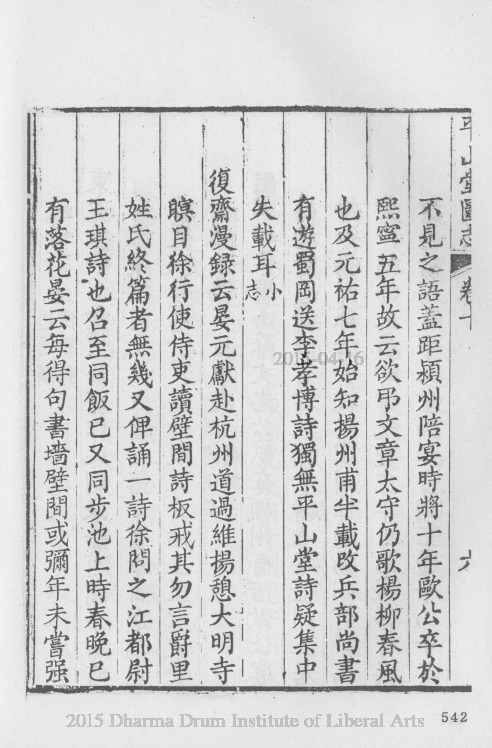 平山堂圖志 卷十 六
不見之語蓋距潁州陪宴時將十年歐公卒於
熙寧五年故云欲弔文章太守仍歌楊柳春風
也及元祐七年始知揚州甫半載改兵部尚書
有遊蜀岡送李孝博詩獨無平山堂詩疑集中
失載耳小志
復齋漫録云晏元獻赴杭州道過維揚憩大明寺
瞑目徐行使侍吏讀壁間詩板戒其勿言爵里
姓氏終篇者無幾又俾誦一詩徐問之江都尉
王琪詩也召至同飯已又同步池上時春晚已
有落花晏云每得句書墻壁間或彌年未嘗强
2015-04-16
2015 Dharma Drum Institute of Liberal Arts
542